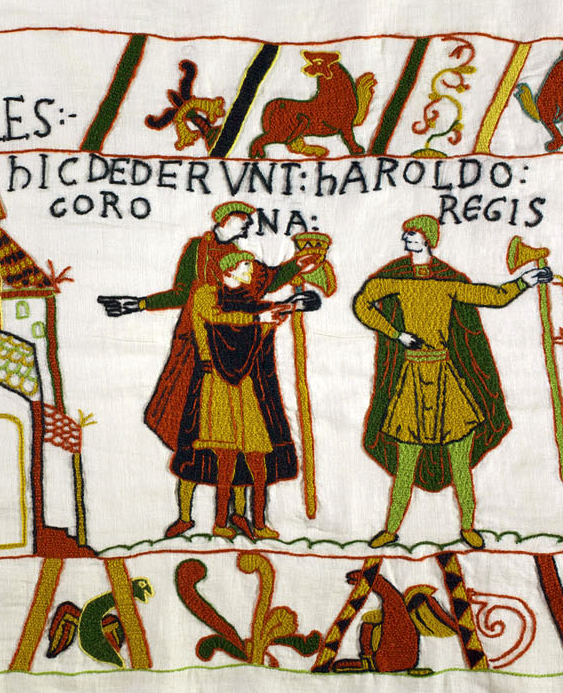 ES:-
hIC DEDERVNT: hAROLDO:
CORO NA: REGIS